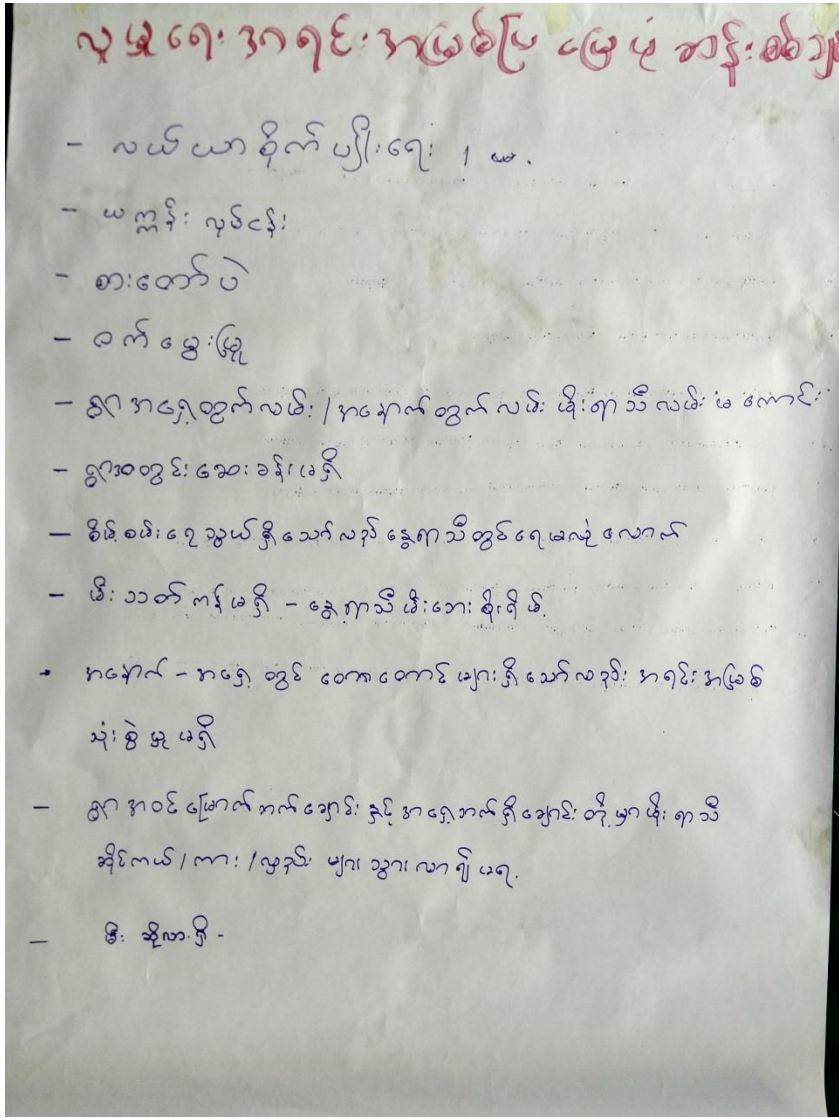 လူမှုရေး အရင်းအမြစ်ပြ မြေပုံ ဆန်းစစ်ချ
- လယ်ယာစိုက်ပျိုးရေး / ယာ.
- ယက္ကန်း လုပ်ငန်း
- စားတော်ပဲ
- ဝက်မွေးမြူ
- ရွာအရှေ့ထွက်လမ်း / အနောက်ထွက်လမ်း မိုးရာသီ လမ်းမကောင်း
- ရွာအတွင်း ဆေးခန်းမရှိ
- စိမ့်စမ်းရေသွယ်ရှိသော်လည်း နွေရာသီတွင်ရေမလုံလောက်
- မီးသတ်ကန်မရှိ - နွေရာသီမီးဘေးစိုးရိမ်
- အနောက် - အရှေ့ တွင် တောတောင်များရှိသော်လည်း အရင်းအမြစ်
သုံးစွဲမှုမရှိ
- ရွာအဝင်မြောက်ဘက်ချောင်းနှင့် အရှေ့ဘက်ရှိချောင်းတို့မှာမိုးရာသီ
ဆိုင်ကယ် / ကား / လှည်း များသွားလာ၍မရ.
- မီး ဆိုလာရှိ -